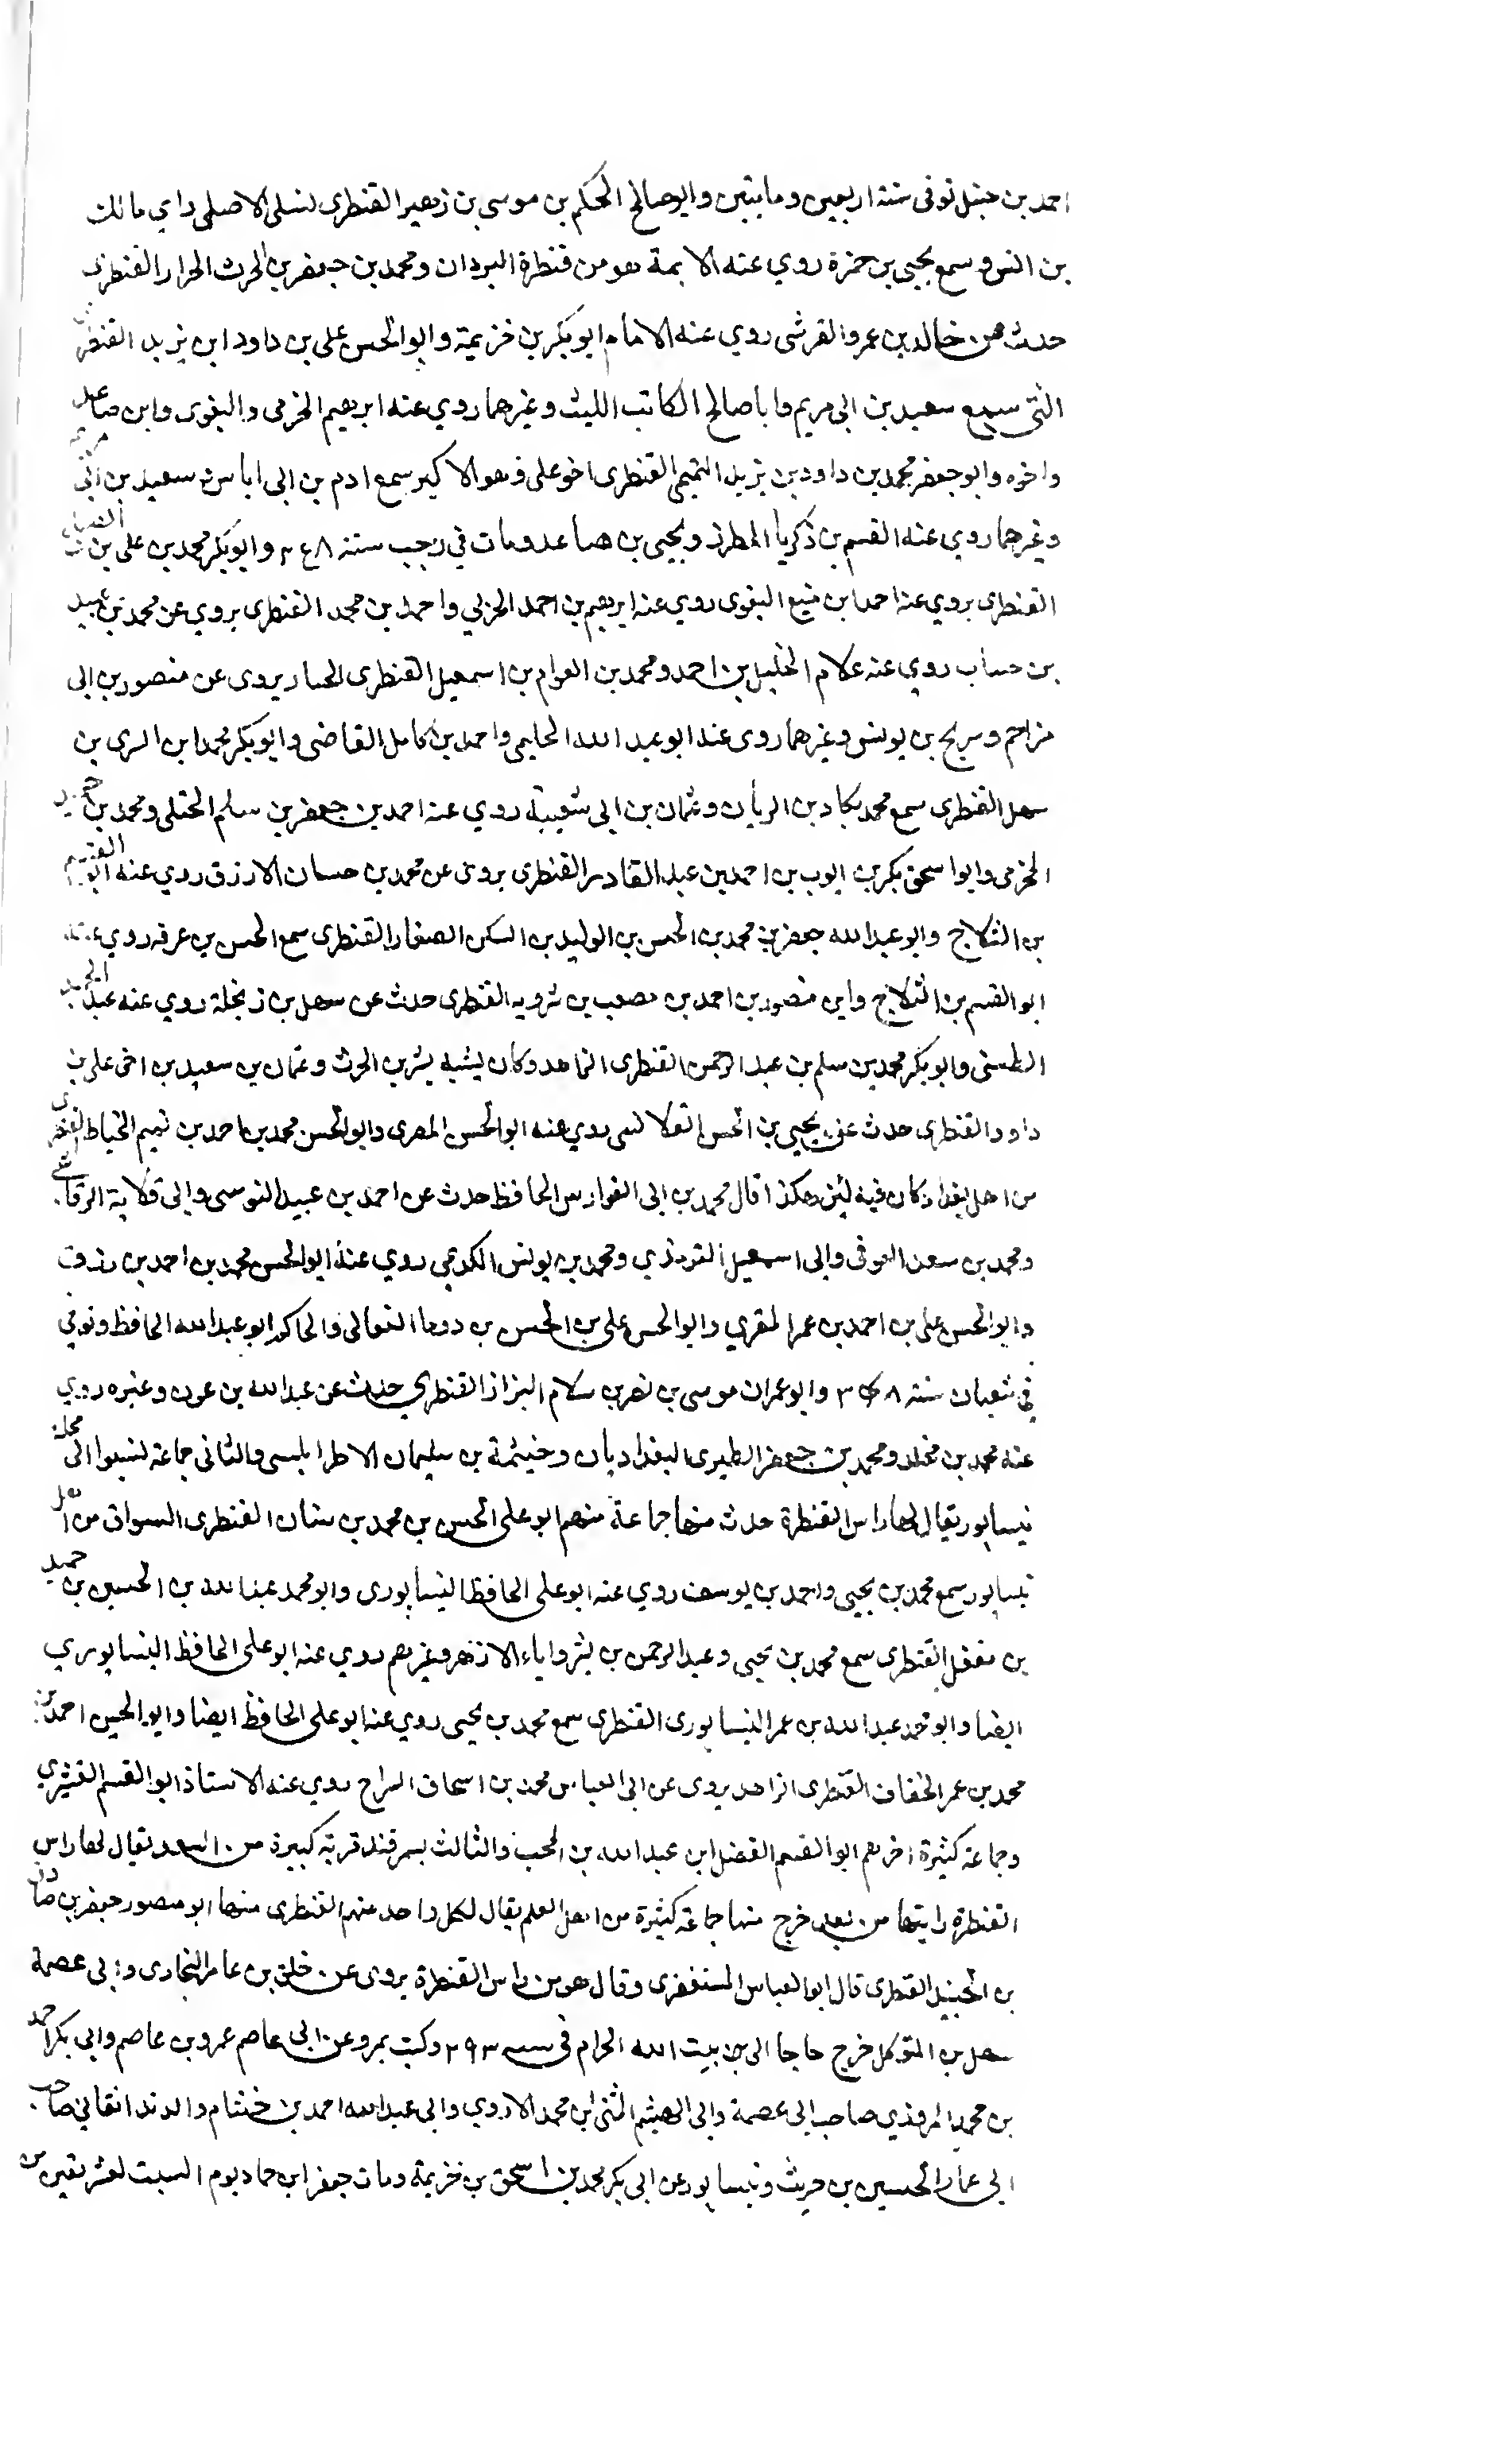 احمد بن حنبل توفى سنة اربعين ومايتين وابو صالح الحكم بن موسى بن زهير القنطرى نسلى الاصلى راي مالك
بن انس وسمع يحيى بن حمزة روي عنه الايمة هو من قنطرة البردان ومحمد بن جعفر بن الحرث الحرار القنطرى
حدث عن خالد بن عمرو القرشى روي عنه الامام ابو بكر بن خزيمة وابو الحسن على بن داود ابن يزيد القنطرى
التى سمع سعيد بن ابى مريم وابا صالح الكاتب الليث وغيرهما روي عنه ابرهيم الحربى والبغوى وابن صاعد
واخوه وابو جعفر محمد بن داود بن يزيد التميمى القنطرى اخو على وهو الاكبر سمع ادم بن ابى اياس وسعيد بن ابى مريم
وغيرهما روي عنه القسم بن زكريا المطرز ويحيى بن صاعد ومات في رجب سنة ٢٤٨ وابو بكر محمد بن على بن
القنطرى يروي عنه احمد ابن منيع البغوى روي عنه ابرهيم بن احمد الخرقي واحمد بن محمد القنطرى يروي عن محمد بن عبيد
بن حساب روي عنه غلام الخليل بن احمد ومحمد بن العوام بن اسمعيل القنطرى الخباز يروى عن منصور بن ابى
مزاحم وسريج بن يونس وغيرهما روى عنه ابو عبد الله الحليمى واحمد بن كامل القاضى وابو بكر محمد ابن السرى بن
سهل القنطرى سمع محمد بكار بن الريان وعثمان بن ابى شيبة روي عنه احمد بن جعفر بن سلم الختلى ومحمد بن حميد
المخرمى وابو اسحق بكر بن ايوب بن احمد بن عبد القادر القنطرى يروى عن محمد بن حسان الازرق روي عنه ابو القسم
بن الثلاج وابو عبد الله جعفر بن محمد بن الحسن بن الوليد بن السكن الصفار القنطرى سمع الحسن بن عرفه روي عنه
ابو القسم بن الثلاج وابن منصور بن احمد بن مصعب بن شرويه القنطرى حدث عن سهل بن زنجلة روي عنه عبد
الطستى وابو بكر محمد بن سلم بن عبد الرحمن القنطرى الزاهد وكان يشبه بشر بن الحرث وعثمان بن سعيد بن اخى على بن
داود القنطرى حدث عن يحيى بن الحسن القلانسى روي عنه ابو الحسن المصرى وابو الحسن محمد بن احمد بن تميم الخياط القنطرى
من اهل بغداد كان فيه لين هكذا قال محمد بن ابى الفوارس الحافظ حدث عن احمد بن عبيد النرسى وابى قلابة الرقاشى
ومحمد بن سعد العوفى وابى اسمعيل الترمذي ومحمد بن يونس الكديمى روي عنه ابو الحسن محمد بن احمد بن رزق
وابو الحسن على بن احمد بن عمر المقري وابو الحسن على بن الحسن بن دوما النعالى والحاكم ابو عبد الله الحافظ وتوفى
في شعبان سنة ٣٤٨ وابو عمران موسى بن نصر بن سلام البزاز القنطري حدث عن عبد الله بن عون وغيره روي
عنه محمد بن مخلد ومحمد بن جعفر الطبرى البغداديان وخيثمة بن سليمان الاطرابلسى والثانى جماعة نسبوا الى محلة
نيسابور يقال لها راس القنطرة حدث منها جماعة منهم ابو على الحسن بن محمد بن سنان القنطرى السواق من اهل
نيسابور سمع محمد بن يحيى واحمد بن يوسف روي عنه ابو على الحافظ النيسابورى وابو محمد عبد الله بن الحسين بن حميد
بن معقل القنطرى سمع محمد بن يحيى وعبد الرحمن بن بشر وابا الازهر وغيرهم روي عنه ابو على الحافظ النيسابوري
ايضا وابو محمد عبد الله بن عمر النيسابورى القنطرى سمع محمد بن يحيى روي عنه ابو على الحافظ ايضا وابو الحسين احمد بن
محمد بن عمر الخفاف القنطرى الزاهد يروى عن ابى العباس محمد بن اسحاق السراج روي عنه الاستاذ ابو القسم القشيري
وجماعة كثيرة اخرهم ابو القسم الفضل ابن عبد الله بن المحب والثالث بسمرقند قرية كبيرة من السغد يقال لها راس
القنطرة رايتها من بعيد خرج منها جماعة كثيرة من اهل العلم يقال لكل واحد منهم القنطرى منها ابو منصور جعفر بن صادق
بن الجنيد القنطرى قال ابو العباس المستغفرى وقال هو من راس القنطرة يروى عن خلق بن عامر البخارى وابى عصمة
سهل بن المتوكل خرج حاجا الى بيت الله الحرام في سنة ٢٩٣ وكتب بمرو عن ابى عاصم عمرو بن عاصم وابى بكر احمد
بن محمد المروذي صاحب ابى عصمة وابى الهيثم المثنى ابن محمد الازدي وابى عبد الله احمد بن خشنام والدندانقاني صاحب
ابى عمار الحسين بن حريث ونيسابور عن ابى بكر محمد بن اسحق بن خزيمة ومات جعفر ابن حماد يوم السبت لعشر بقين من